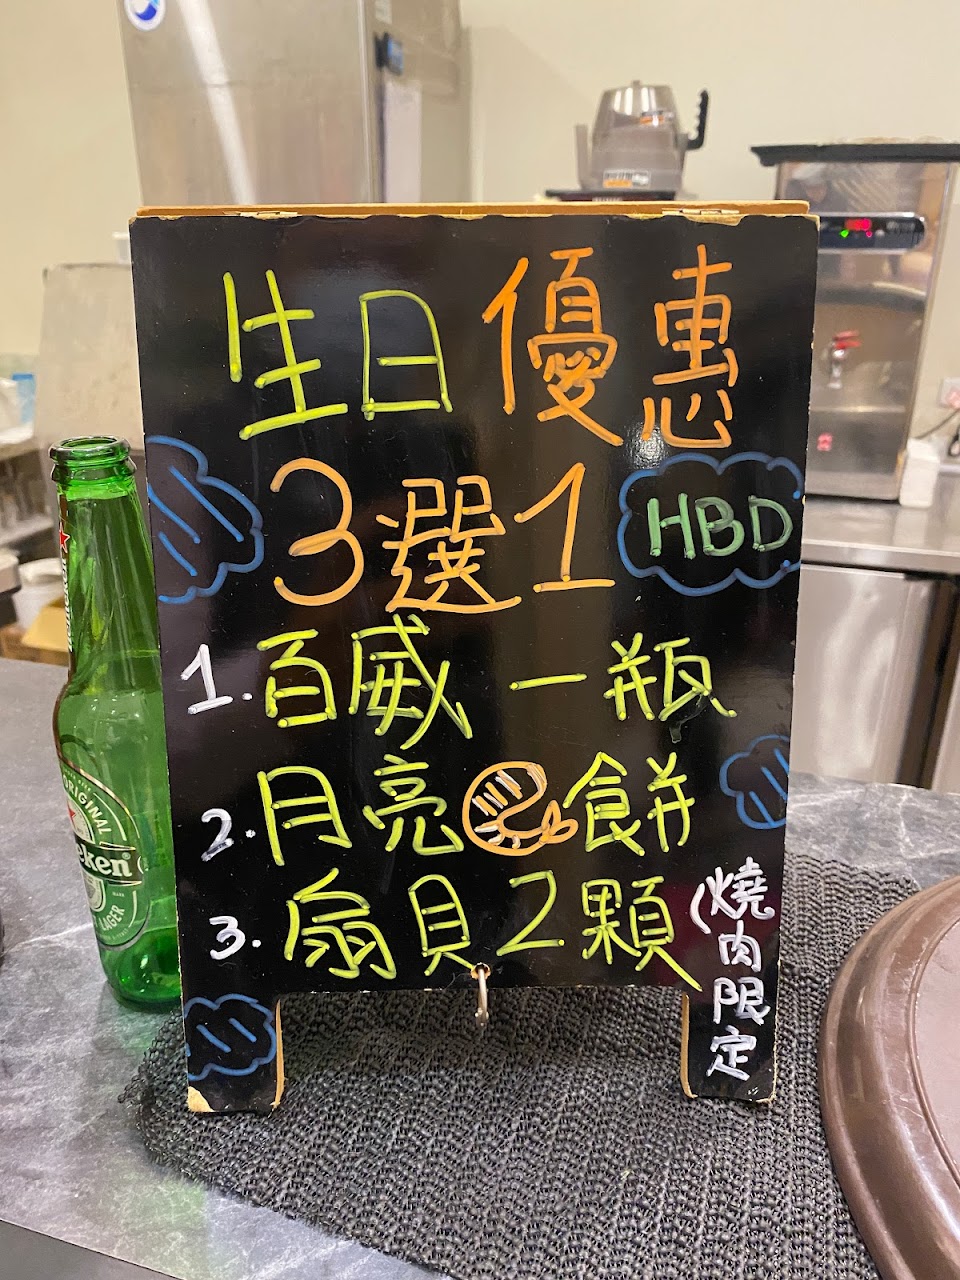 生日優惠
3選1
HBD
1.百威 一瓶
2.月亮 餅
3.扇貝2顆
(燒肉限定
ORIGINAL
eken
LAGER